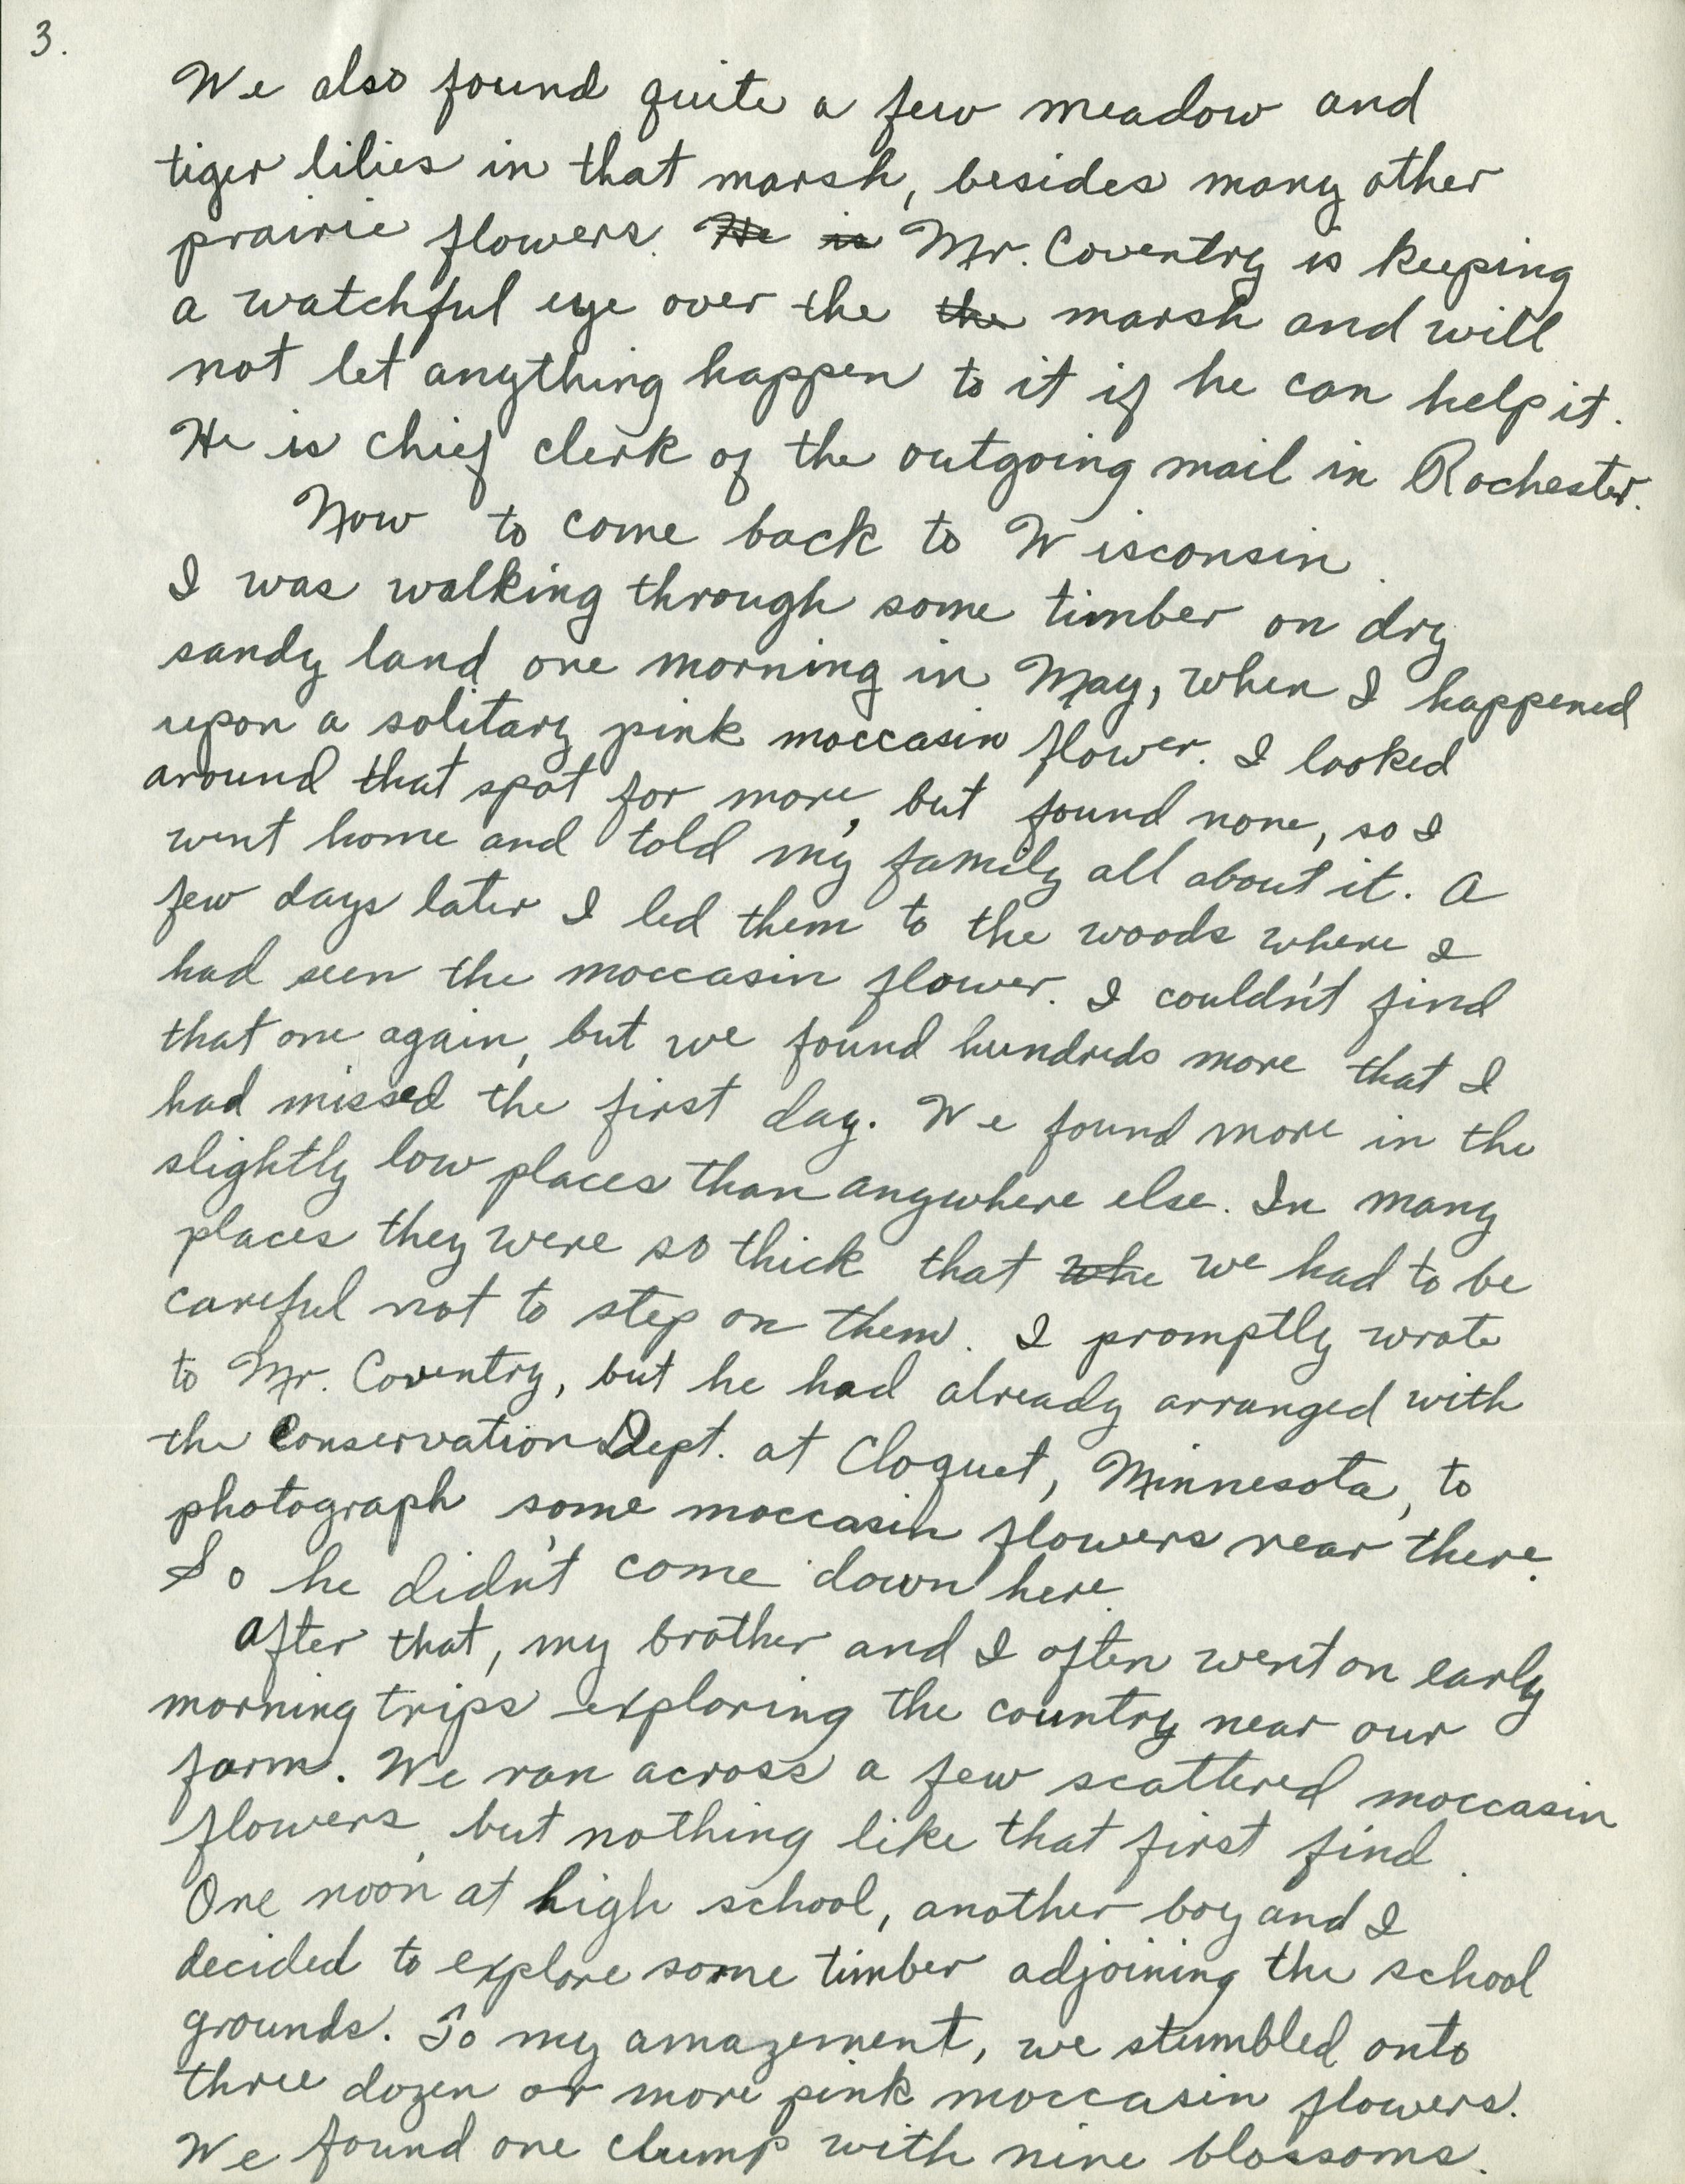 3.
We also found quite a few meadow and
tiger lilies in that marsh, besides many other
prairie flowers. He is Mr. Coventry is keeping
a watchful eye over the the marsh and will
not let anything happen to it if he can help it.
He is chief clerk of the outgoing mail in Rochester.
Now to come back to Wisconsin.
I was walking through some timber on dry
sandy land one morning in May, when I happened
upon a solitary pink moccasin flower. I looked
around that spot for more, but found none, so I
went home and told my family all about it. A
few days later I led them to the woods where I
had seen the moccasin flower. I couldn't find
that one again, but we found hundreds more that I
had missed the first day. We found more in the
slightly low places than anywhere else. In many
places they were so thick that whe we had to be
careful not to step on them. I promptly wrote
to Mr. Coventry, but he had already arranged with
the Conservation Dept. at Cloquet, Minnesota, to
photograph some moccasin flowers near there.
So he didn't come down here.
After that, my brother and I often went on early
morning trips exploring the country near our
farm. We ran across a few scattered moccasin
flowers, but nothing like that first find.
One noon at high school, another boy and I
decided to explore some timber adjoining the school
grounds. To my amazement, we stumbled onto
three dozen or more pink moccasin flowers.
We found one clump with nine blossoms.